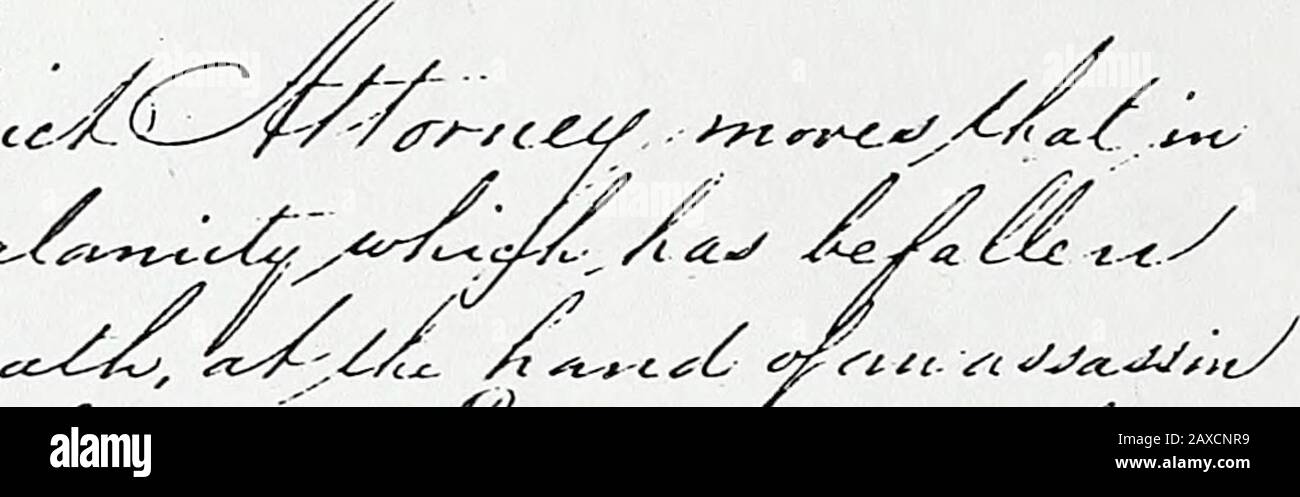 ict Attorney moves that in
alamity which has befallen
eath, at the hand of an assassin
alamy
Image ID: 2AXCNR9
www.alamy.com